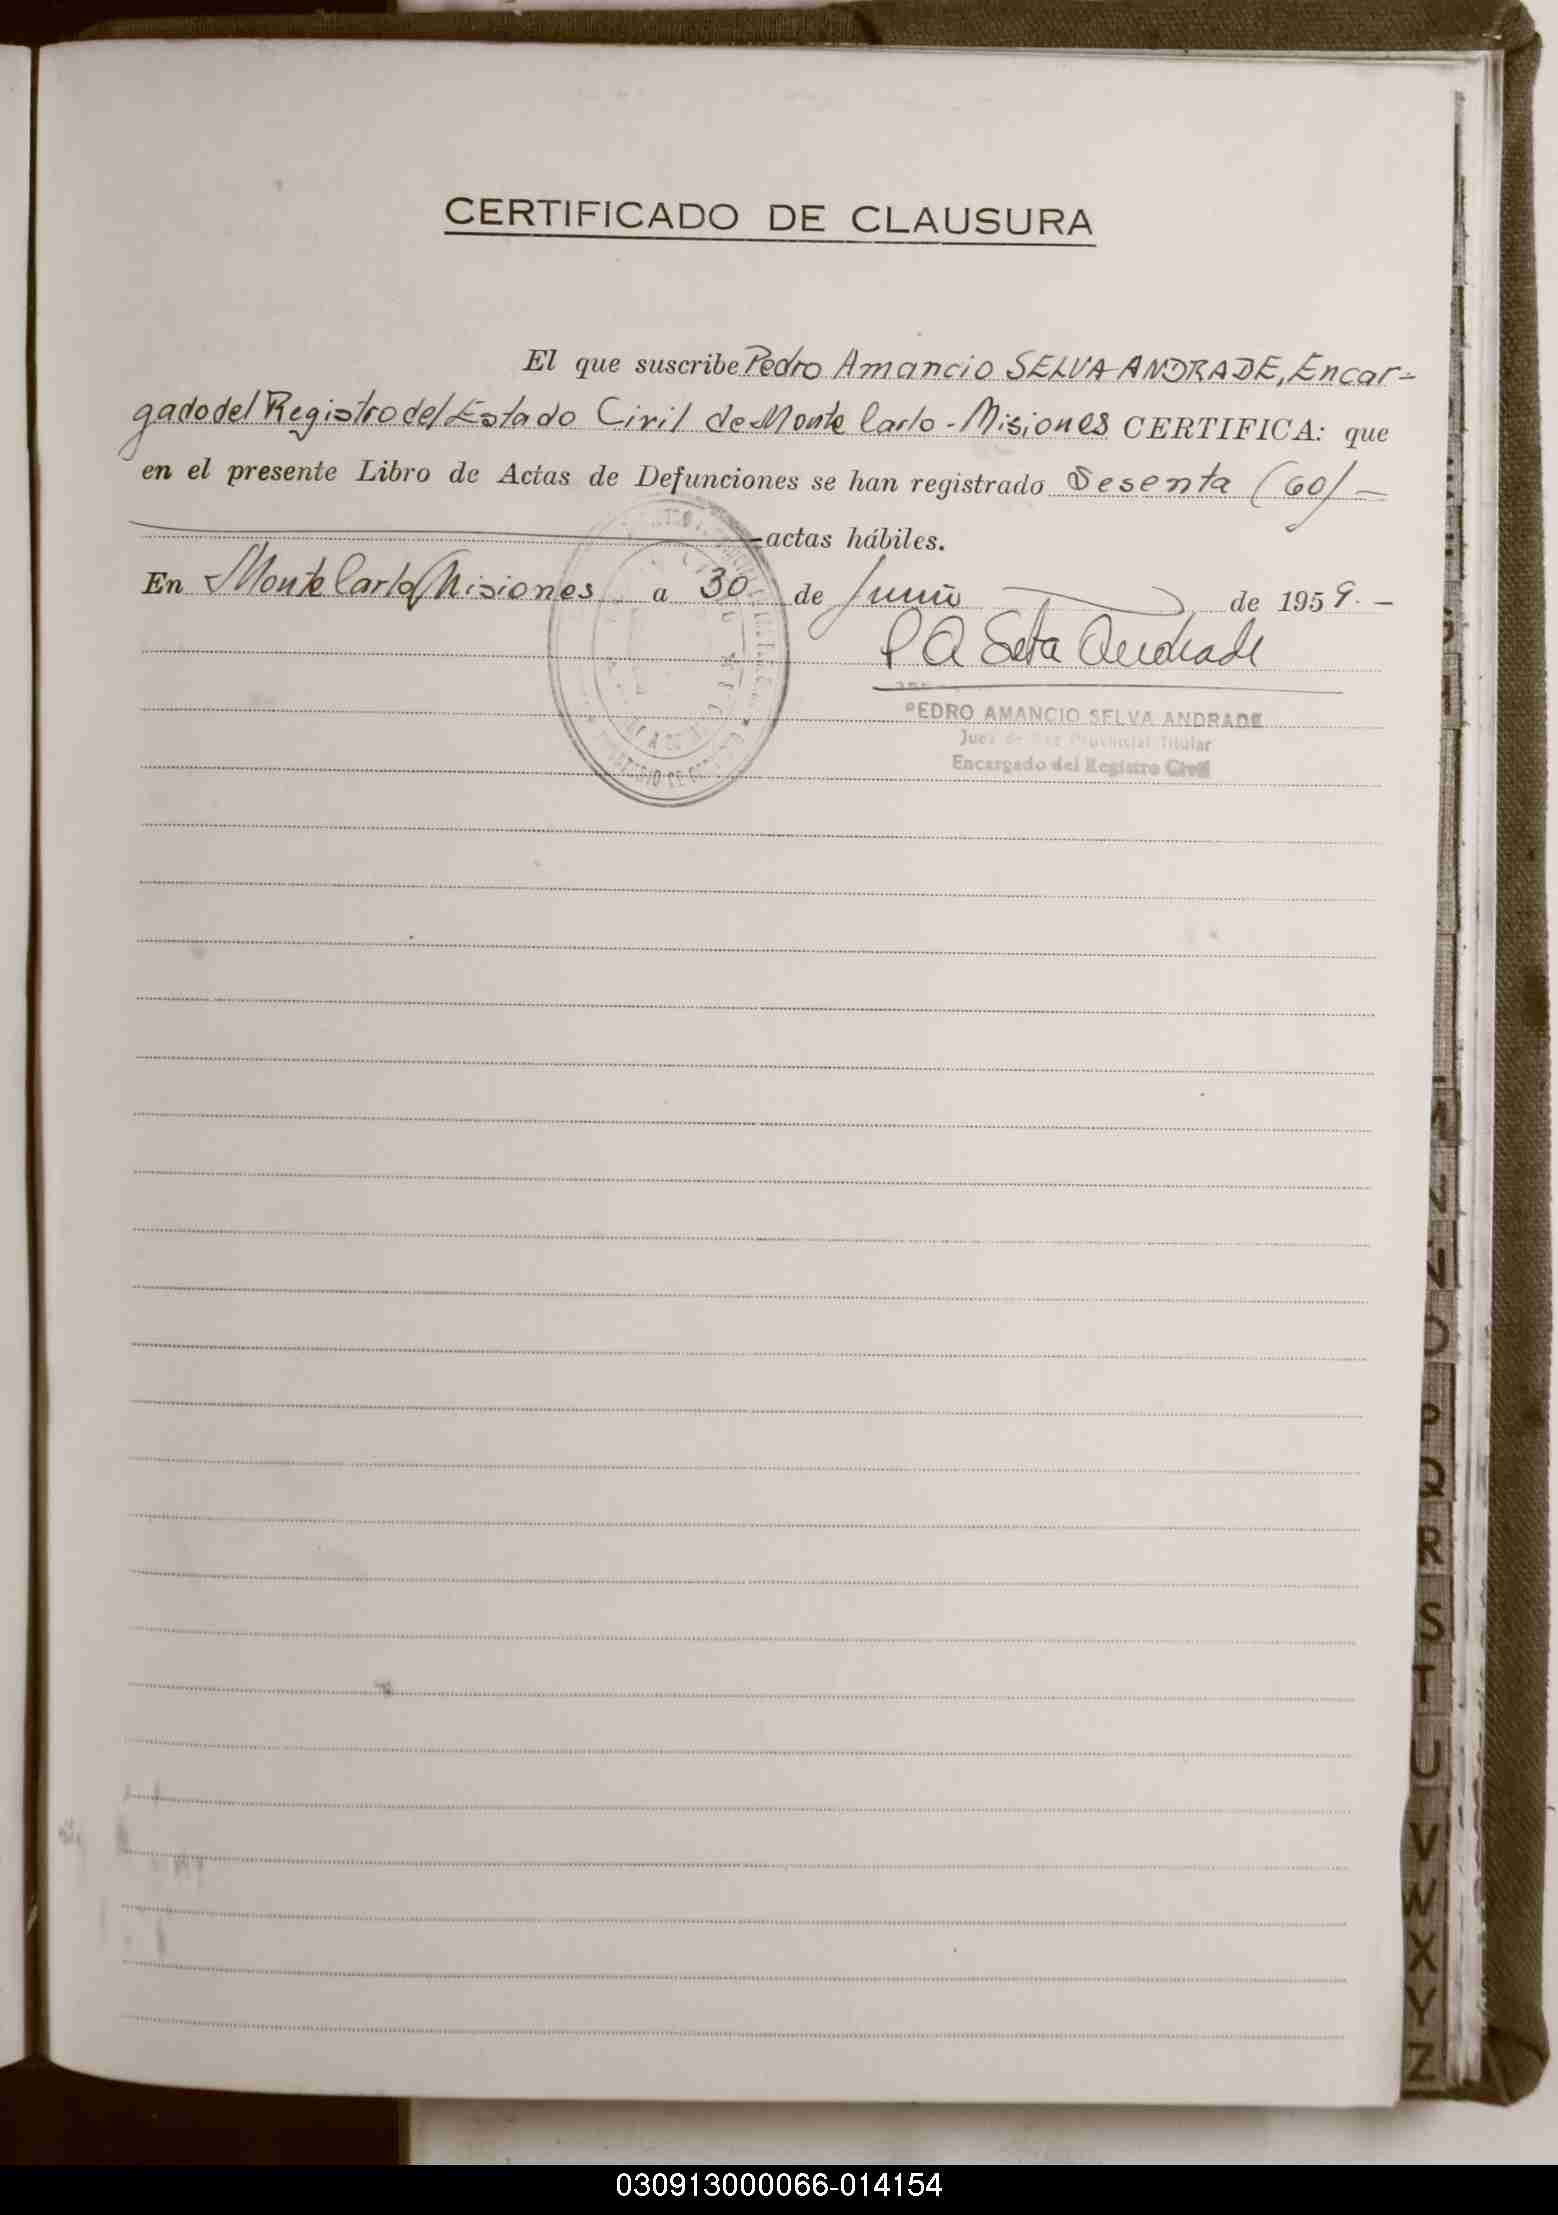 CERTIFICADO DE CLAUSURA
El que suscribe Pedro Amancio SELVA ANDRADE, Encar-
gado del Registro del Estado Civil de Monte Carlo - Misiones CERTIFICA: que
en el presente Libro de Actas de Defunciones se han registrado Sesenta (60) -
actas hábiles.
En Monte Carlo Misiones a 30 de Junio de 1959. -
P A Selva Andrade
PEDRO AMANCIO SELVA ANDRADE
Juez de Paz Provincial Titular
Encargado del Registro Civil
N
O
P
Q
R
S
T
U
V
W
X
Y
Z
030913000066-014154